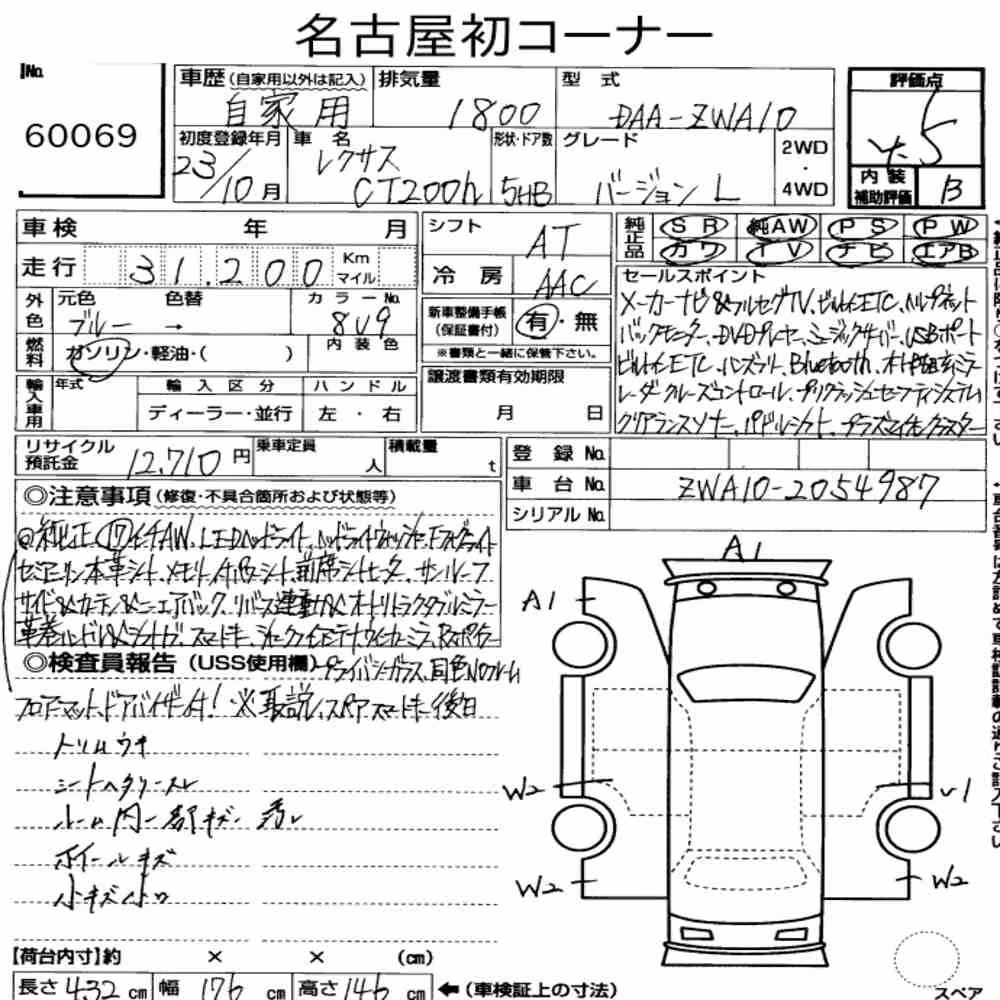 名古屋初コーナー
No. 60069
車歴 (自家用以外は記入) 自家用
排気量 1800
型式 DAA-ZWA10
評価点 5
初度登録年月 23/10月
車名 レクサス CT200h
形状・ドア数 5HB
グレード バージョンL
2WD・4WD
内装補助評価 B
車検 年 月
走行 31,200 Km マイル
シフト AT
冷房 AAC
純正品 SR 純AW PS PW
カワ TV ナビ エアB
外色 元色 ブルー → 色替
カラーNo. 8U9
燃料 ガソリン・軽油・( )
内装色
新車整備手帳(保証書付) 有・無
※書類と一緒に保管下さい。
輸入車用 年式 輸入区分 ディーラー・並行 ハンドル 左・右
譲渡書類有効期限 月 日
セールスポイント
メーカーナビ&フルセグTV、ビルトインETC、ヘルプネット
バックモニター、DVDプレーヤー、ミュージックサーバー、USBポート
ビルトインETC、ハンズフリー、Bluetooth、オート防眩ミラー
レーダクルーズコントロール、プリクラッシュセーフティシステム
クリアランスソナー、パドルシフト、プラズマイオンクラスター
リサイクル預託金 12,710円
乗車定員 人
積載量 t
登録No.
車台No. ZWA10-2054987
シリアルNo.
◎注意事項(修復・不具合箇所および状態等)
◎純正17インチAW、LEDヘッドライト、ヘッドライトウォッシャー、フォグライト
セミアニリン本革シート、メモリー付パワーシート、前席シートヒーター、サンルーフ
サイド&カーテン&ニーエアバック、リバース連動&オートリトラクタブルミラー
革巻ハンドル&シフトノブ、スマートキー、シャークフィンアンテナ、ウインカーミラー、Rスポイラー
プライバシーガラス、同色Noフレーム
◎検査員報告(USS使用欄)
フロアマット、ドアバイザー付! ※取説、スペアスマートキー後日
トリムウキ
シートヘタリ・スレ
ルーム内一部キズ・汚レ
ホイールキズ
小キズ小凹
A1
A1
W2
W2
W2
【荷台内寸】約 × × (cm)
長さ 432cm 幅 176cm 高さ 146cm ←(車検証上の寸法)
スペア